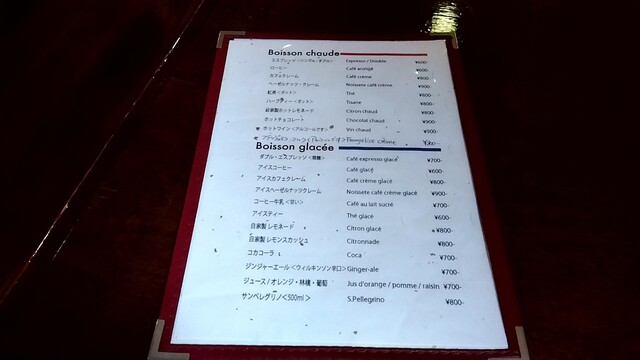 Boisson chaude
エスプレッソ<シングル・ダブル> Espresso / Double ¥600-
コーヒー Café allongé ¥600-
カフェクレーム Café crème ¥800-
ヘーゼルナッツ・クレーム Noisette café crème ¥900-
紅茶<ポット> Thé ¥800-
ハーブティー<ポット> Tisane ¥800-
自家製ホットレモネード Citron chaud ¥800-
ホットチョコレート Chocolat chaud ¥900-
ホットワイン<アルコールです> Vin chaud ¥900-
crème
Boisson glacée
ダブル・エスプレッソ Café expresso glacé ¥700-
アイスコーヒー Café glacé ¥600-
アイスカフェクレーム Café crème glacé ¥800-
アイスヘーゼルナッツクレーム Noisette café crème glacé ¥900-
コーヒー牛乳<甘い> Café au lait sucré ¥700-
アイスティー Thé glacé ¥600-
自家製 レモネード Citron glacé ¥800-
自家製 レモンスカッシュ Citronnade ¥800-
コカコーラ Coca ¥700-
ジンジャーエール<ウィルキンソン辛口> Ginger-ale ¥700-
ジュース / オレンジ・林檎・葡萄 Jus d'orange / pomme / raisin ¥700-
サンペレグリノ<500ml> S.Pellegrino ¥800-